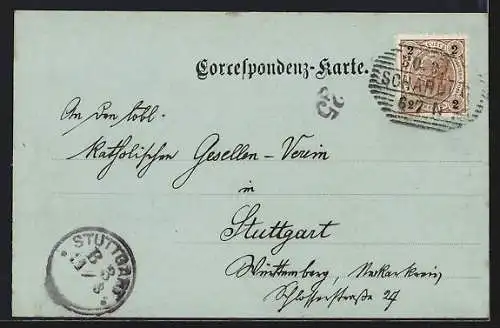 2 2
Correspondenz-Karte.
SCHANDL
6-7 N
2 2
25
An den löbl.
Katholischen Gesellen-Verein
in
Stuttgart
Württemberg, Neckarkreis
Schlosserstraße 27
STUTTGART